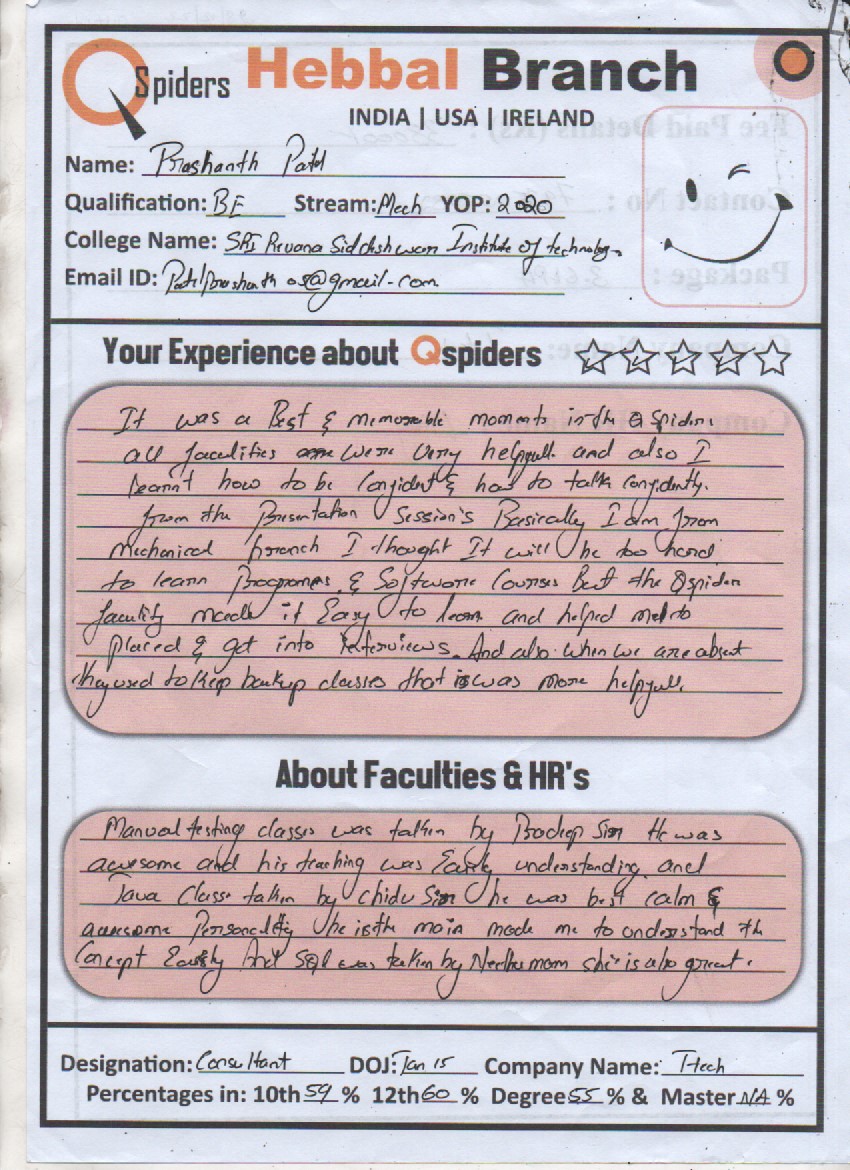 QSpiders Hebbal Branch
INDIA | USA | IRELAND
Name: Prashanth Patil
Qualification: BE Stream: Mech YOP: 2020
College Name: SRI Revana Siddeshwar Institute of technology
Email ID: Patilprashanth 03@gmail.com
Your Experience about Qspiders
It was a Best & memorable moments in the Q Spiders
all faculities were very helpfull and also I
learn't how to be Confident & how to talk confidently.
from the Presentation Session's Basically I am from
Mechanical branch I thought It will be too hard
to learn Programes & Software Courses But the Qspider
faculity made it Easy to learn and helped me to
placed & get into interviews. And also when we are absent
they used to keep backup classes that was more helpfull.
About Faculties & HR's
Manual testing classes was taken by Pradeep Sir He was
awesome and his teaching was Easily understanding and
Java Classe taken by chidu Sir he was best calm &
awesome Personality he is the main made me to understand the
Concept Easily And SQL was taken by Neetha mam she is also great.
Designation: Consultant DOJ: Jan 15 Company Name: T-tech
Percentages in: 10th 59 % 12th 60 % Degree 55 % & Master N/A %